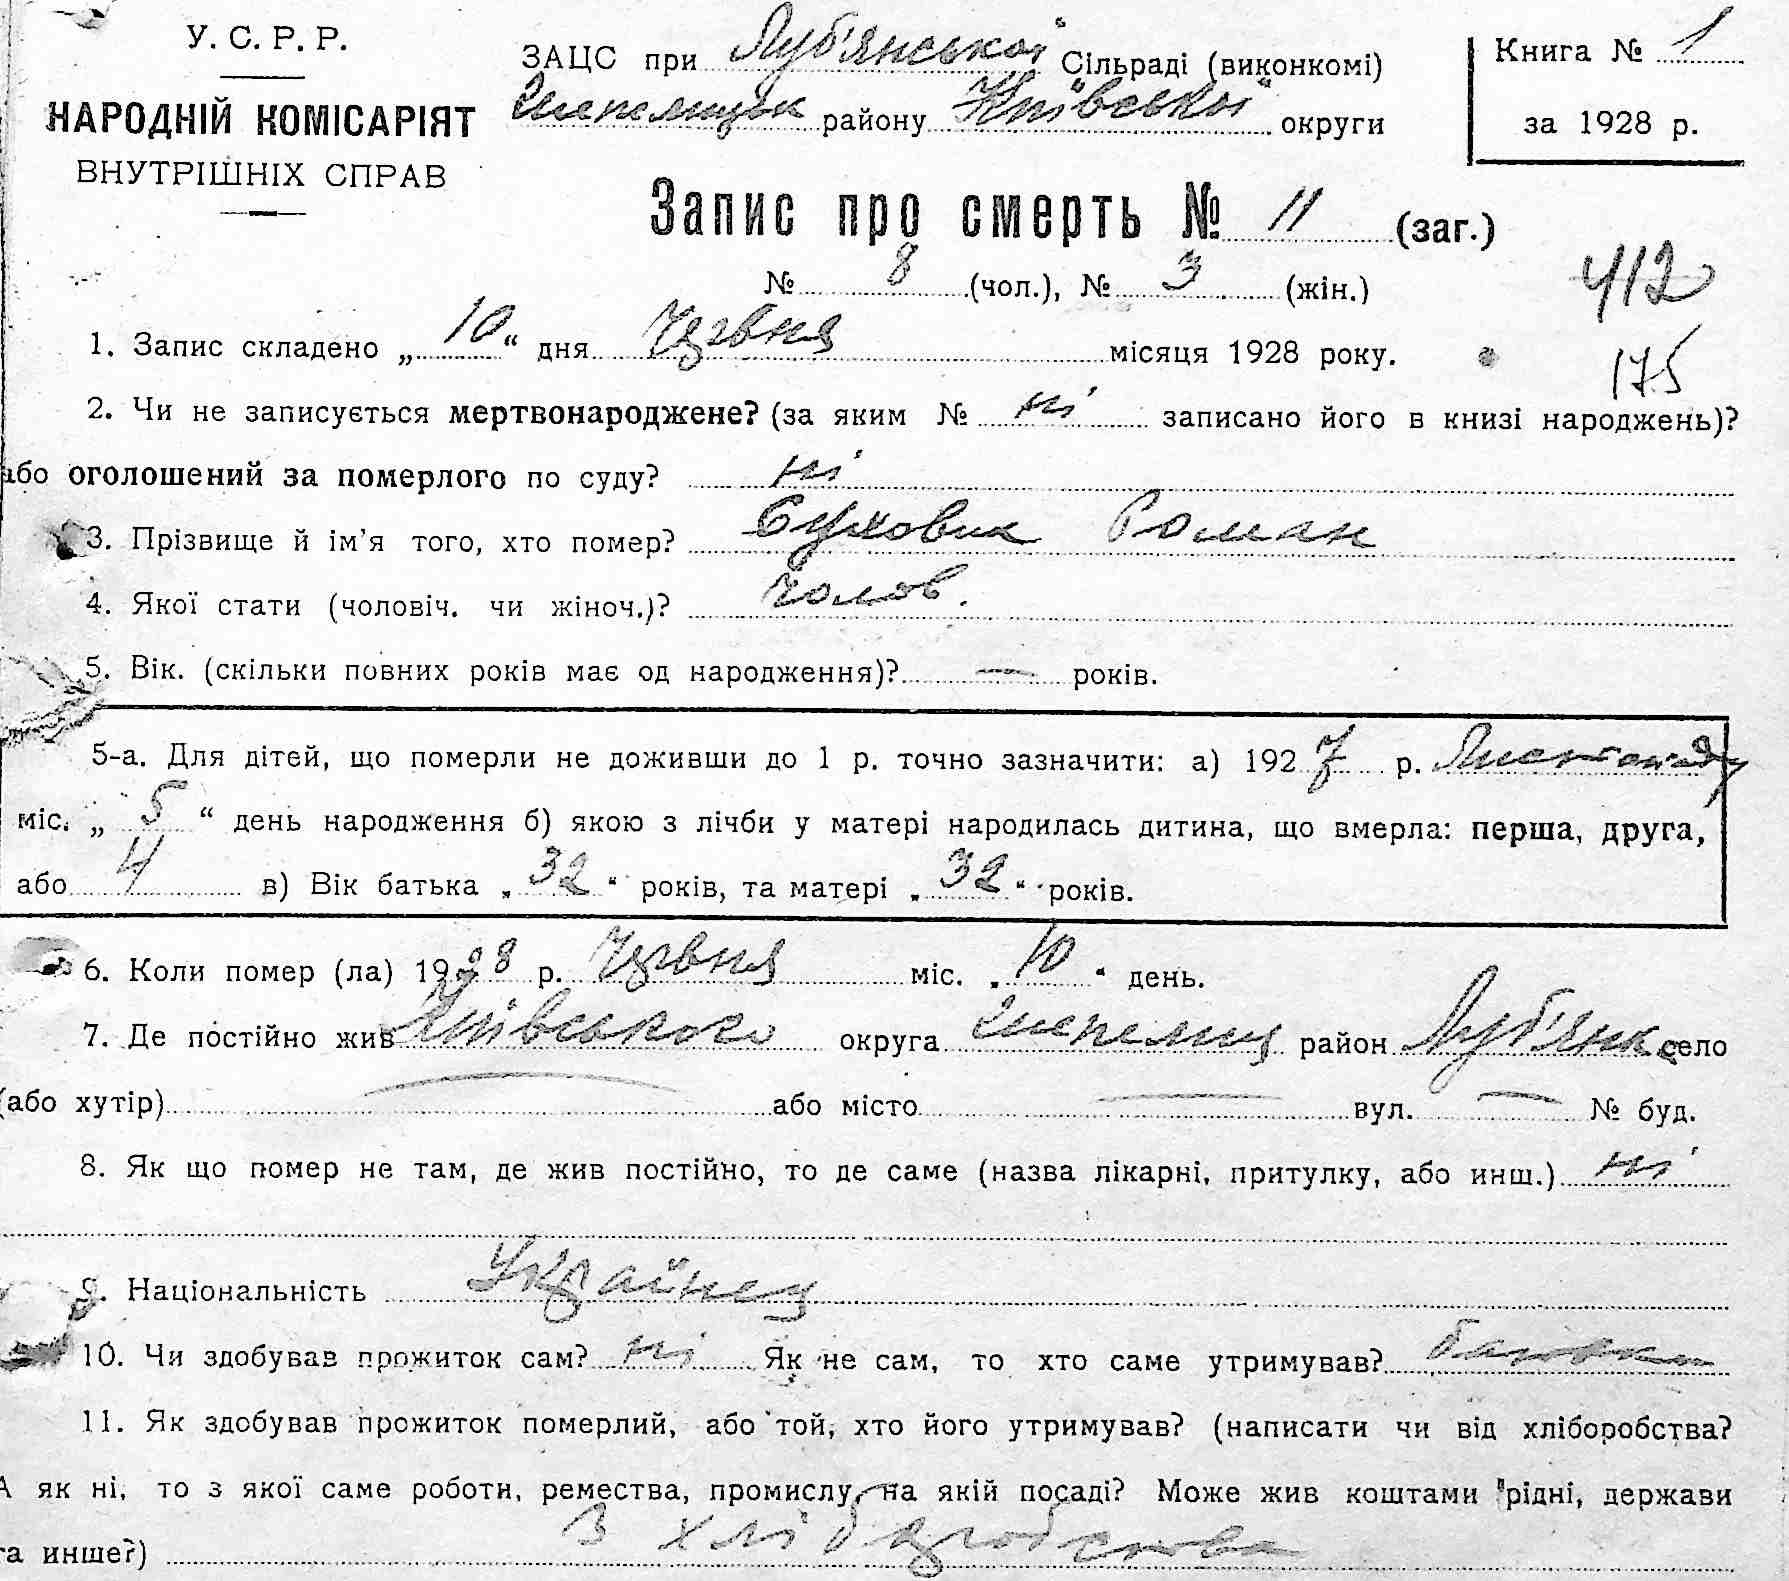 У. С. Р. Р.
НАРОДНІЙ КОМІСАРІЯТ
ВНУТРІШНІХ СПРАВ
ЗАЦС при Луб'янської Сільраді (виконкомі)
району Київської округи
Книга № 1
за 1928 р.
Запис про смерть № 11 (заг.)
№ 8 (чол.), № 3 (жін.)
412
1. Запис складено „ 10 “ дня Червня місяця 1928 року.
175
2. Чи не записується мертвонароджене? (за яким № ні записано його в книзі народжень)?
або оголошений за померлого по суду? ні
3. Прізвище й ім'я того, хто помер? Суховик Роман
4. Якої стати (чоловіч. чи жіноч.)? чолов.
5. Вік. (скільки повних років має од народження)? — років.
5-а. Для дітей, що померли не доживши до 1 р. точно зазначити: а) 1927 р. Листопаду
міс. „ 5 “ день народження б) якою з лічби у матері народилась дитина, що вмерла: перша, друга,
або 4 в) Вік батька „ 32 “ років, та матері „ 32 “ років.
6. Коли помер (ла) 1928 р. Червня міс. „ 10 “ день.
7. Де постійно жив Київського округа Шепелиц район Луб'янка село
(або хутір) — або місто — вул. — № буд.
8. Як що помер не там, де жив постійно, то де саме (назва лікарні, притулку, або инш.) ні
9. Національність Українец
10. Чи здобував прожиток сам? ні Як не сам, то хто саме утримував? батьки
11. Як здобував прожиток померлий, або той, хто його утримував? (написати чи від хліборобства?
А як ні, то з якої саме роботи, ремества, промислу, на якій посаді? Може жив коштами рідні, держави
та инше?) З хліборобства